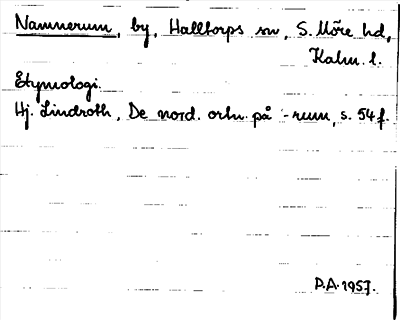 Namnerum, by, Halltorps sn, S. Möre hd,
Kalm. l.
Etymologi.
Hj. Lindroth, De nord. ortn. på -rum, s. 54 f.
P.A. 1957.